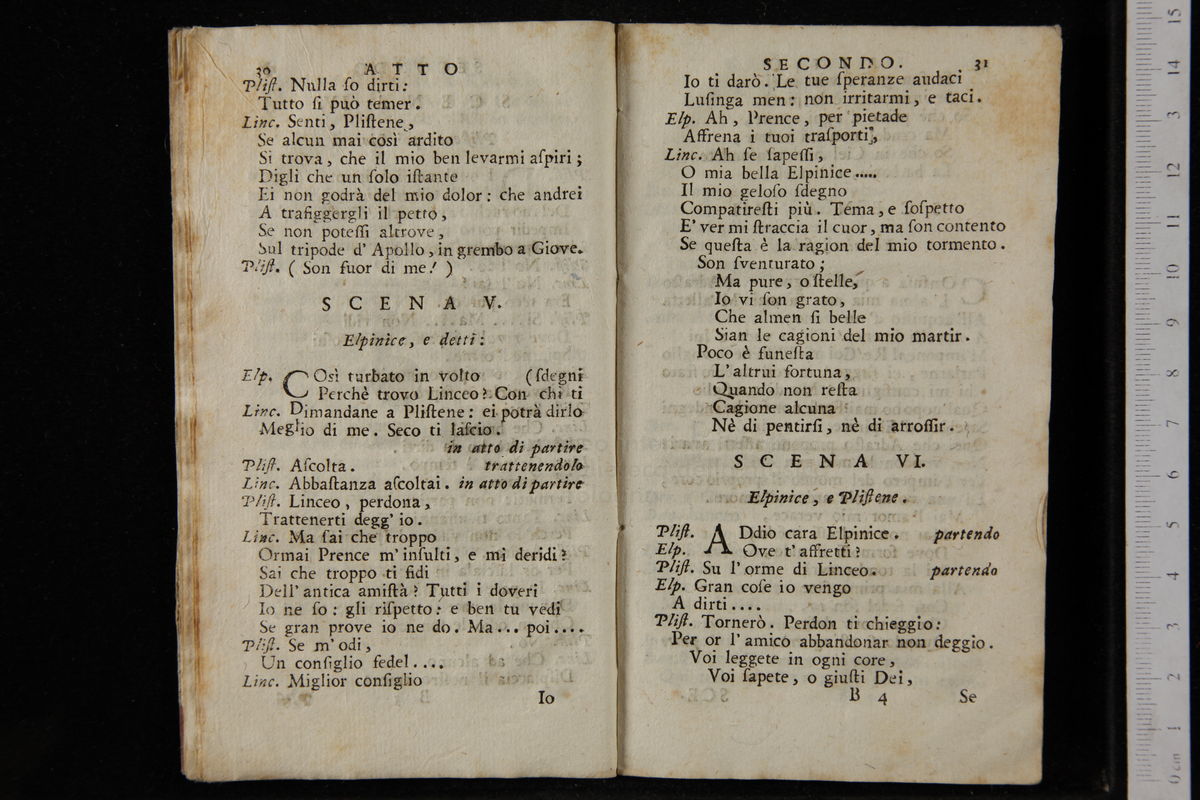 30 ATTO
Pliſt. Nulla ſo dirti:
Tutto ſi può temer.
Linc. Senti, Pliſtene,
Se alcun mai così ardito
Si trova, che il mio ben levarmi aſpiri;
Digli che un ſolo iſtante
Ei non godrà del mio dolor: che andrei
A trafiggergli il petto,
Se non poteſſi altrove,
Sul tripode d' Apollo, in grembo a Giove.
Pliſt. ( Son fuor di me! )
SCENA V.
Elpinice, e detti:
Elp. COsì turbato in volto (ſdegni
Perchè trovo Linceo? Con chi ti
Linc. Dimandane a Pliſtene: ei potrà dirlo
Meglio di me. Seco ti laſcio.
in atto di partire
Pliſt. Aſcolta. trattenendolo
Linc. Abbaſtanza aſcoltai. in atto di partire
Pliſt. Linceo, perdona,
Trattenerti degg' io.
Linc. Ma ſai che troppo
Ormai Prence m' inſulti, e mi deridi?
Sai che troppo ti fidi
Dell' antica amiſtà? Tutti i doveri
Io ne ſo: gli riſpetto: e ben tu vedi
Se gran prove io ne do. Ma... poi....
Pliſt. Se m' odi,
Un conſiglio fedel....
Linc. Miglior conſiglio
Io
SECONDO. 31
Io ti darò. Le tue ſperanze audaci
Luſinga men: non irritarmi, e taci.
Elp. Ah, Prence, per pietade
Affrena i tuoi traſporti,
Linc. Ah ſe ſapeſſi,
O mia bella Elpinice.....
Il mio geloſo ſdegno
Compatireſti più. Tema, e ſoſpetto
E' ver mi ſtraccia il cuor, ma ſon contento
Se queſta è la ragion del mio tormento.
Son ſventurato;
Ma pure, o ſtelle,
Io vi ſon grato,
Che almen ſi belle
Sian le cagioni del mio martir.
Poco è funeſta
L' altrui fortuna,
Quando non reſta
Cagione alcuna
Nè di pentirſi, nè di arroſſir.
SCENA VI.
Elpinice, e Pliſtene.
Pliſt. ADdio cara Elpinice. partendo
Elp. Ove t' affretti?
Pliſt. Su l' orme di Linceo. partendo
Elp. Gran coſe io vengo
A dirti....
Pliſt. Tornerò. Perdon ti chieggio:
Per or l' amico abbandonar non deggio.
Voi leggete in ogni core,
Voi ſapete, o giuſti Dei,
B 4 Se